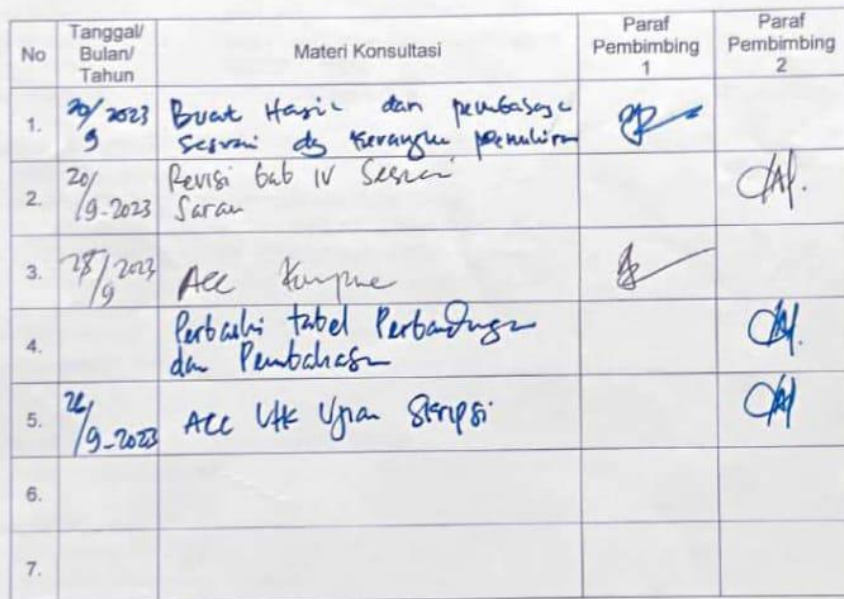 No
Tanggal/
Bulan/
Tahun
Materi Konsultasi
Paraf
Pembimbing
1
Paraf
Pembimbing
2
1.
20/ 2023
9
Buat Hasil dan pembahasan
sesuai dg kerangka penulisan
2.
20/
/9-2023
Revisi bab IV Sesuai
Saran
3.
28/ 2023
/9
Acc
4.
Perbaiki tabel Perbandingan
dan Pembahasan
5.
/9-2023
ACC Utk Ujian Skripsi
6.
7.